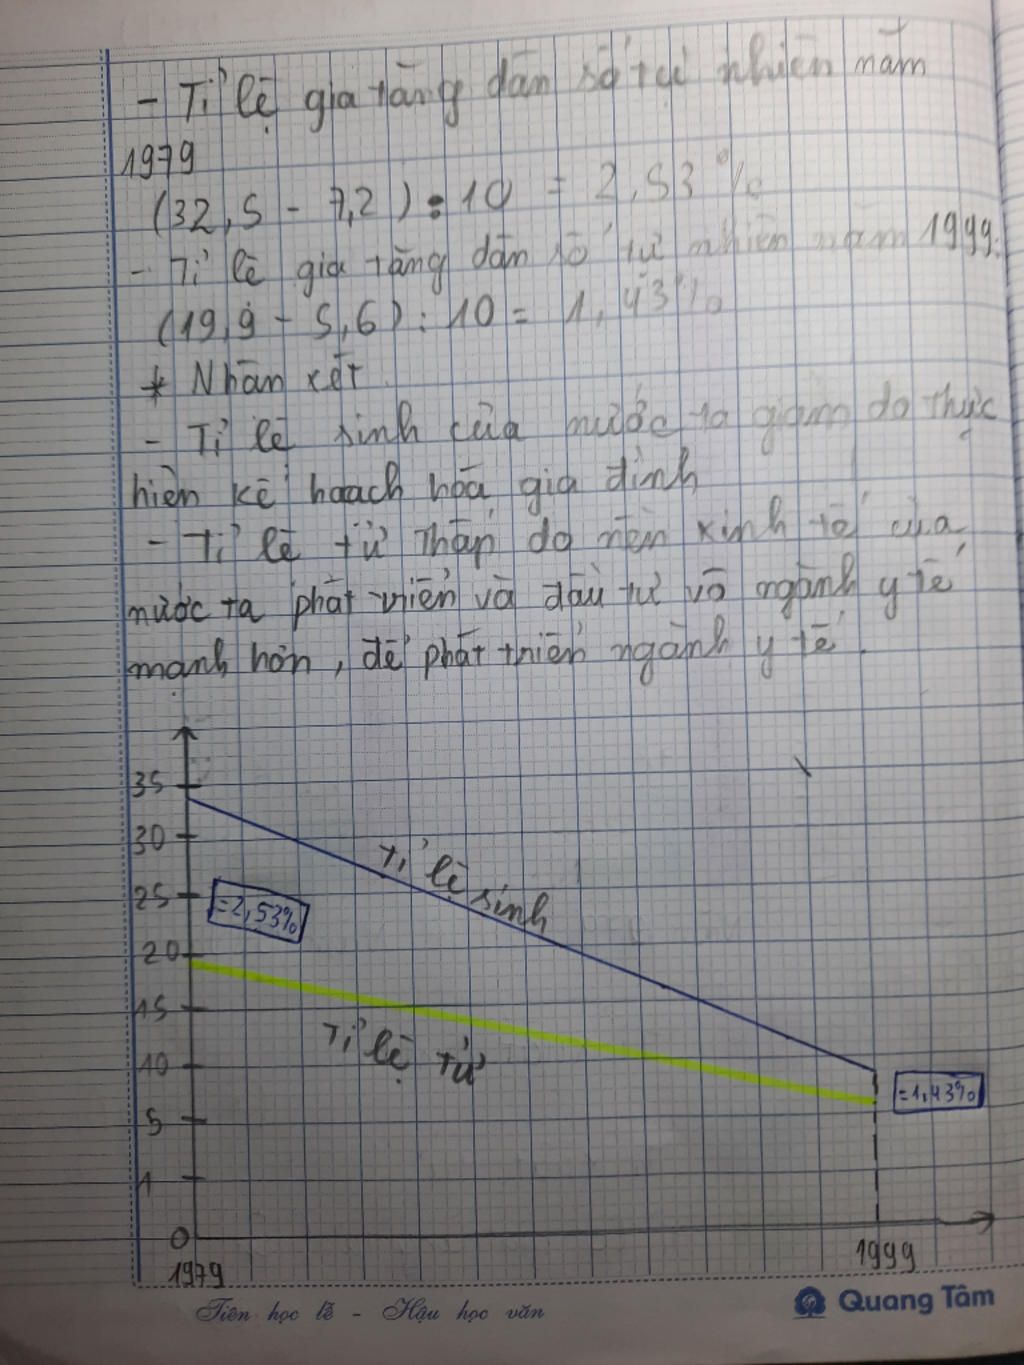 - Tỉ lệ gia tăng dân số tự nhiên năm
1979
(32,5 - 7,2) : 10 = 2,53%
- Tỉ lệ gia tăng dân số tự nhiên năm 1999.
(19,9 - 5,6) : 10 = 1,43%
* Nhận xét
- Tỉ lệ sinh của nước ta giảm do thực
hiện kế hoạch hóa gia đình
- Tỉ lệ tử thấp do nền kinh tế của
nước ta phát triển và đầu tư vô ngành y tế
mạnh hơn, để phát triển ngành y tế.
35
30
25
20
15
10
5
1
0
Tỉ lệ sinh
=2,53%
Tỉ lệ tử
=1,43%
1979
1999
Tiên học lễ - Hậu học văn
Quang Tâm